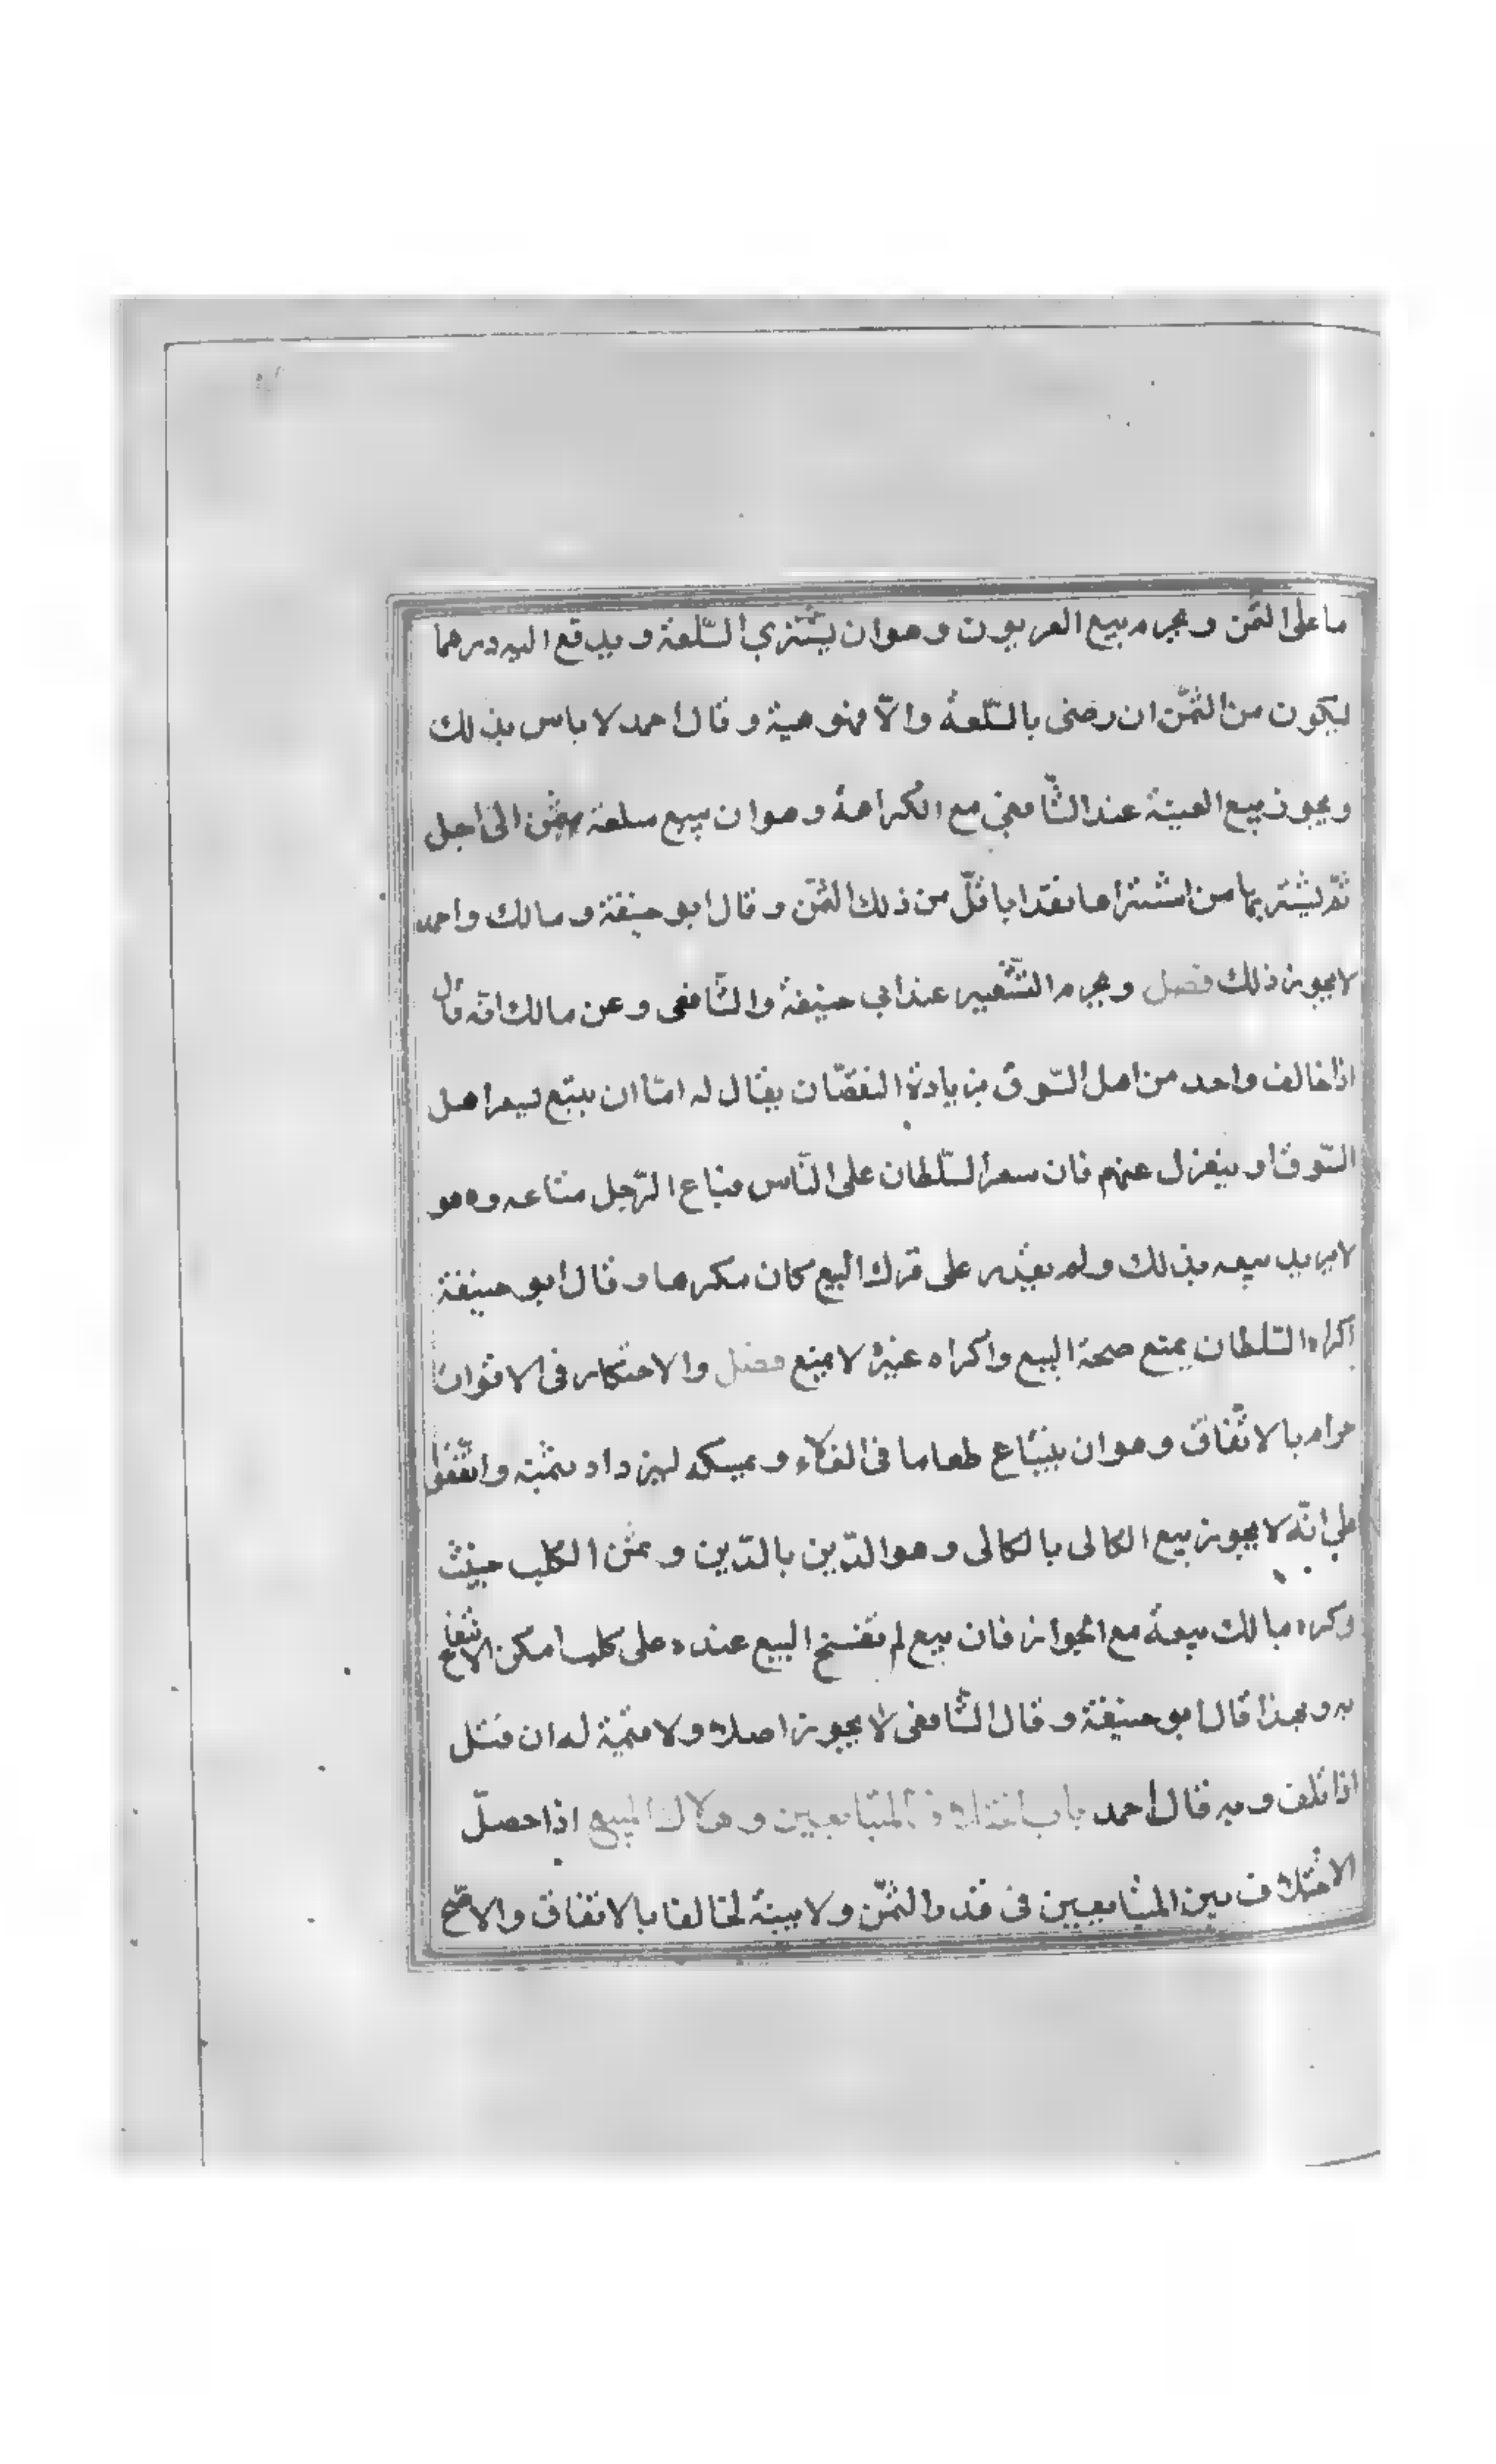 ما على الثمن ويحرم بيع العربون وهو ان يشتري السّلعة ويدفع اليه درهما
ليكون من الثمّن ان رضى بالسّلعة والاّ فهو هبة وقال احمد لا باس بذلك
ويجوز بيع العينة عند الشّافعي مع الكراهة وهو ان يبيع سلعة بثمن الى اجل
ثمّ يشتريها من اشتراها نقدا باقلّ من ذلك الثمّن وقال ابو حنيفة ومالك واحمد
لا يجوز ذلك فصل ويحرم التّسعير عند ابي حنيفة والشّافعى وعن مالك انّه قال
اذا خالف واحد من اهل السّوق بزيادة النقصان يقال له امّا ان يبيع بسعر اهل
السّوق او ينعزل عنهم فان سعر السّلطان على النّاس فباع الرّجل متاعه وهو
لا يريد بيعه بذلك ولم يقدر على ترك البيع كان مكرها وقال ابو حنيفة
اكراه السّلطان يمنع صحة البيع واكراه غيره لا يمنع فصل والاحتكار فى الاقوات
حرام بالاتّفاق وهو ان يبتاع طعاما فى الغلاء ويمسكه ليزداد ثمنه واتّفقوا
على انّه لا يجوز بيع الكالى بالكالى وهو الدّين بالدّين وثمن الكلب خبيث
وكره مالك بيعه مع الجواز فان بيع لم يفسخ البيع عنده على كلب امكن الانتفاع
به وبهذا قال ابو حنيفة وقال الشّافعى لا يجوز اصلا ولا قيمة له ان قتل
اذا تلف وبه قال احمد باب اختلاف المتبايعين وهلاك المبيع اذا حصلّ
الاختلاف بين المتبايعين فى قدر الثمّن ولا بينة تحالفا بالاتفاق والاصّح